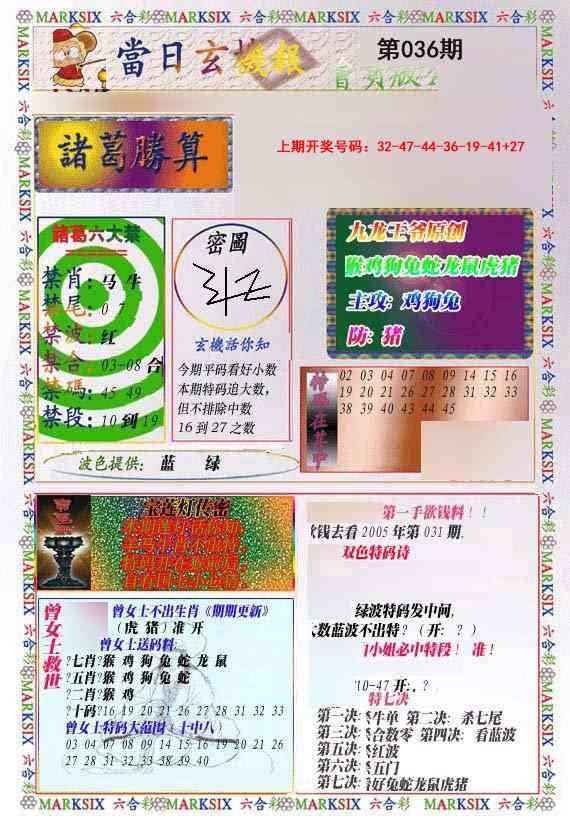 MARKSIX 六合彩 MARKSIX 六合彩 MARKSIX 六合彩 MARKSIX 六合彩
當日玄機報
第036期
諸葛勝算
上期开奖号码：32-47-44-36-19-41+27
諸葛六大禁
禁肖：马 牛
禁尾：0 7
禁波：红
禁合：03-08 合
禁碼：45 49
禁段：10 到 19
密圖
玄機話你知
今期平码看好小数
本期特码追大数，
但不排除中数
16 到 27 之数
九龙王爷原创
猴鸡狗兔蛇龙鼠虎猪
主攻：鸡狗兔
防：猪
特码在其中
02 03 04 07 08 09 14 15 16
19 20 21 26 27 28 31 32 33
38 39 40 43 44 45
波色提供： 蓝 绿
宝莲灯传密
曾女士救世
曾女士不出生肖《期期更新》
（虎 猪）准 开
曾女士送码料:
?七肖?猴 鸡 狗 兔 蛇 龙 鼠
?五肖?猴 鸡 狗 兔 蛇
?二肖?猴 鸡
?十码?16 19 20 21 26 27 28 31 32 33
曾女士特码大范围（十中八）
03 04 07 08 09 14 15 16 19 20 21 26
27 28 31 32 33 38 39 40
第一手欲钱料！！
欲钱去看 2005 年第 031 期,
双色特码诗
绿波特码发中间,
大数蓝波不出特？（开：？）
小姐必中特段！ 准！
10-47 开:.？
特七决
第一决:杀牛单 第二决: 杀七尾
第三决:杀合数零 第四决: 看蓝波
第五决:杀红波
第六决:杀五门
第七决:看好兔蛇龙鼠虎猪
MARKSIX 六合彩 MARKSIX 六合彩 MARKSIX 六合彩 MARKSIX 六合彩